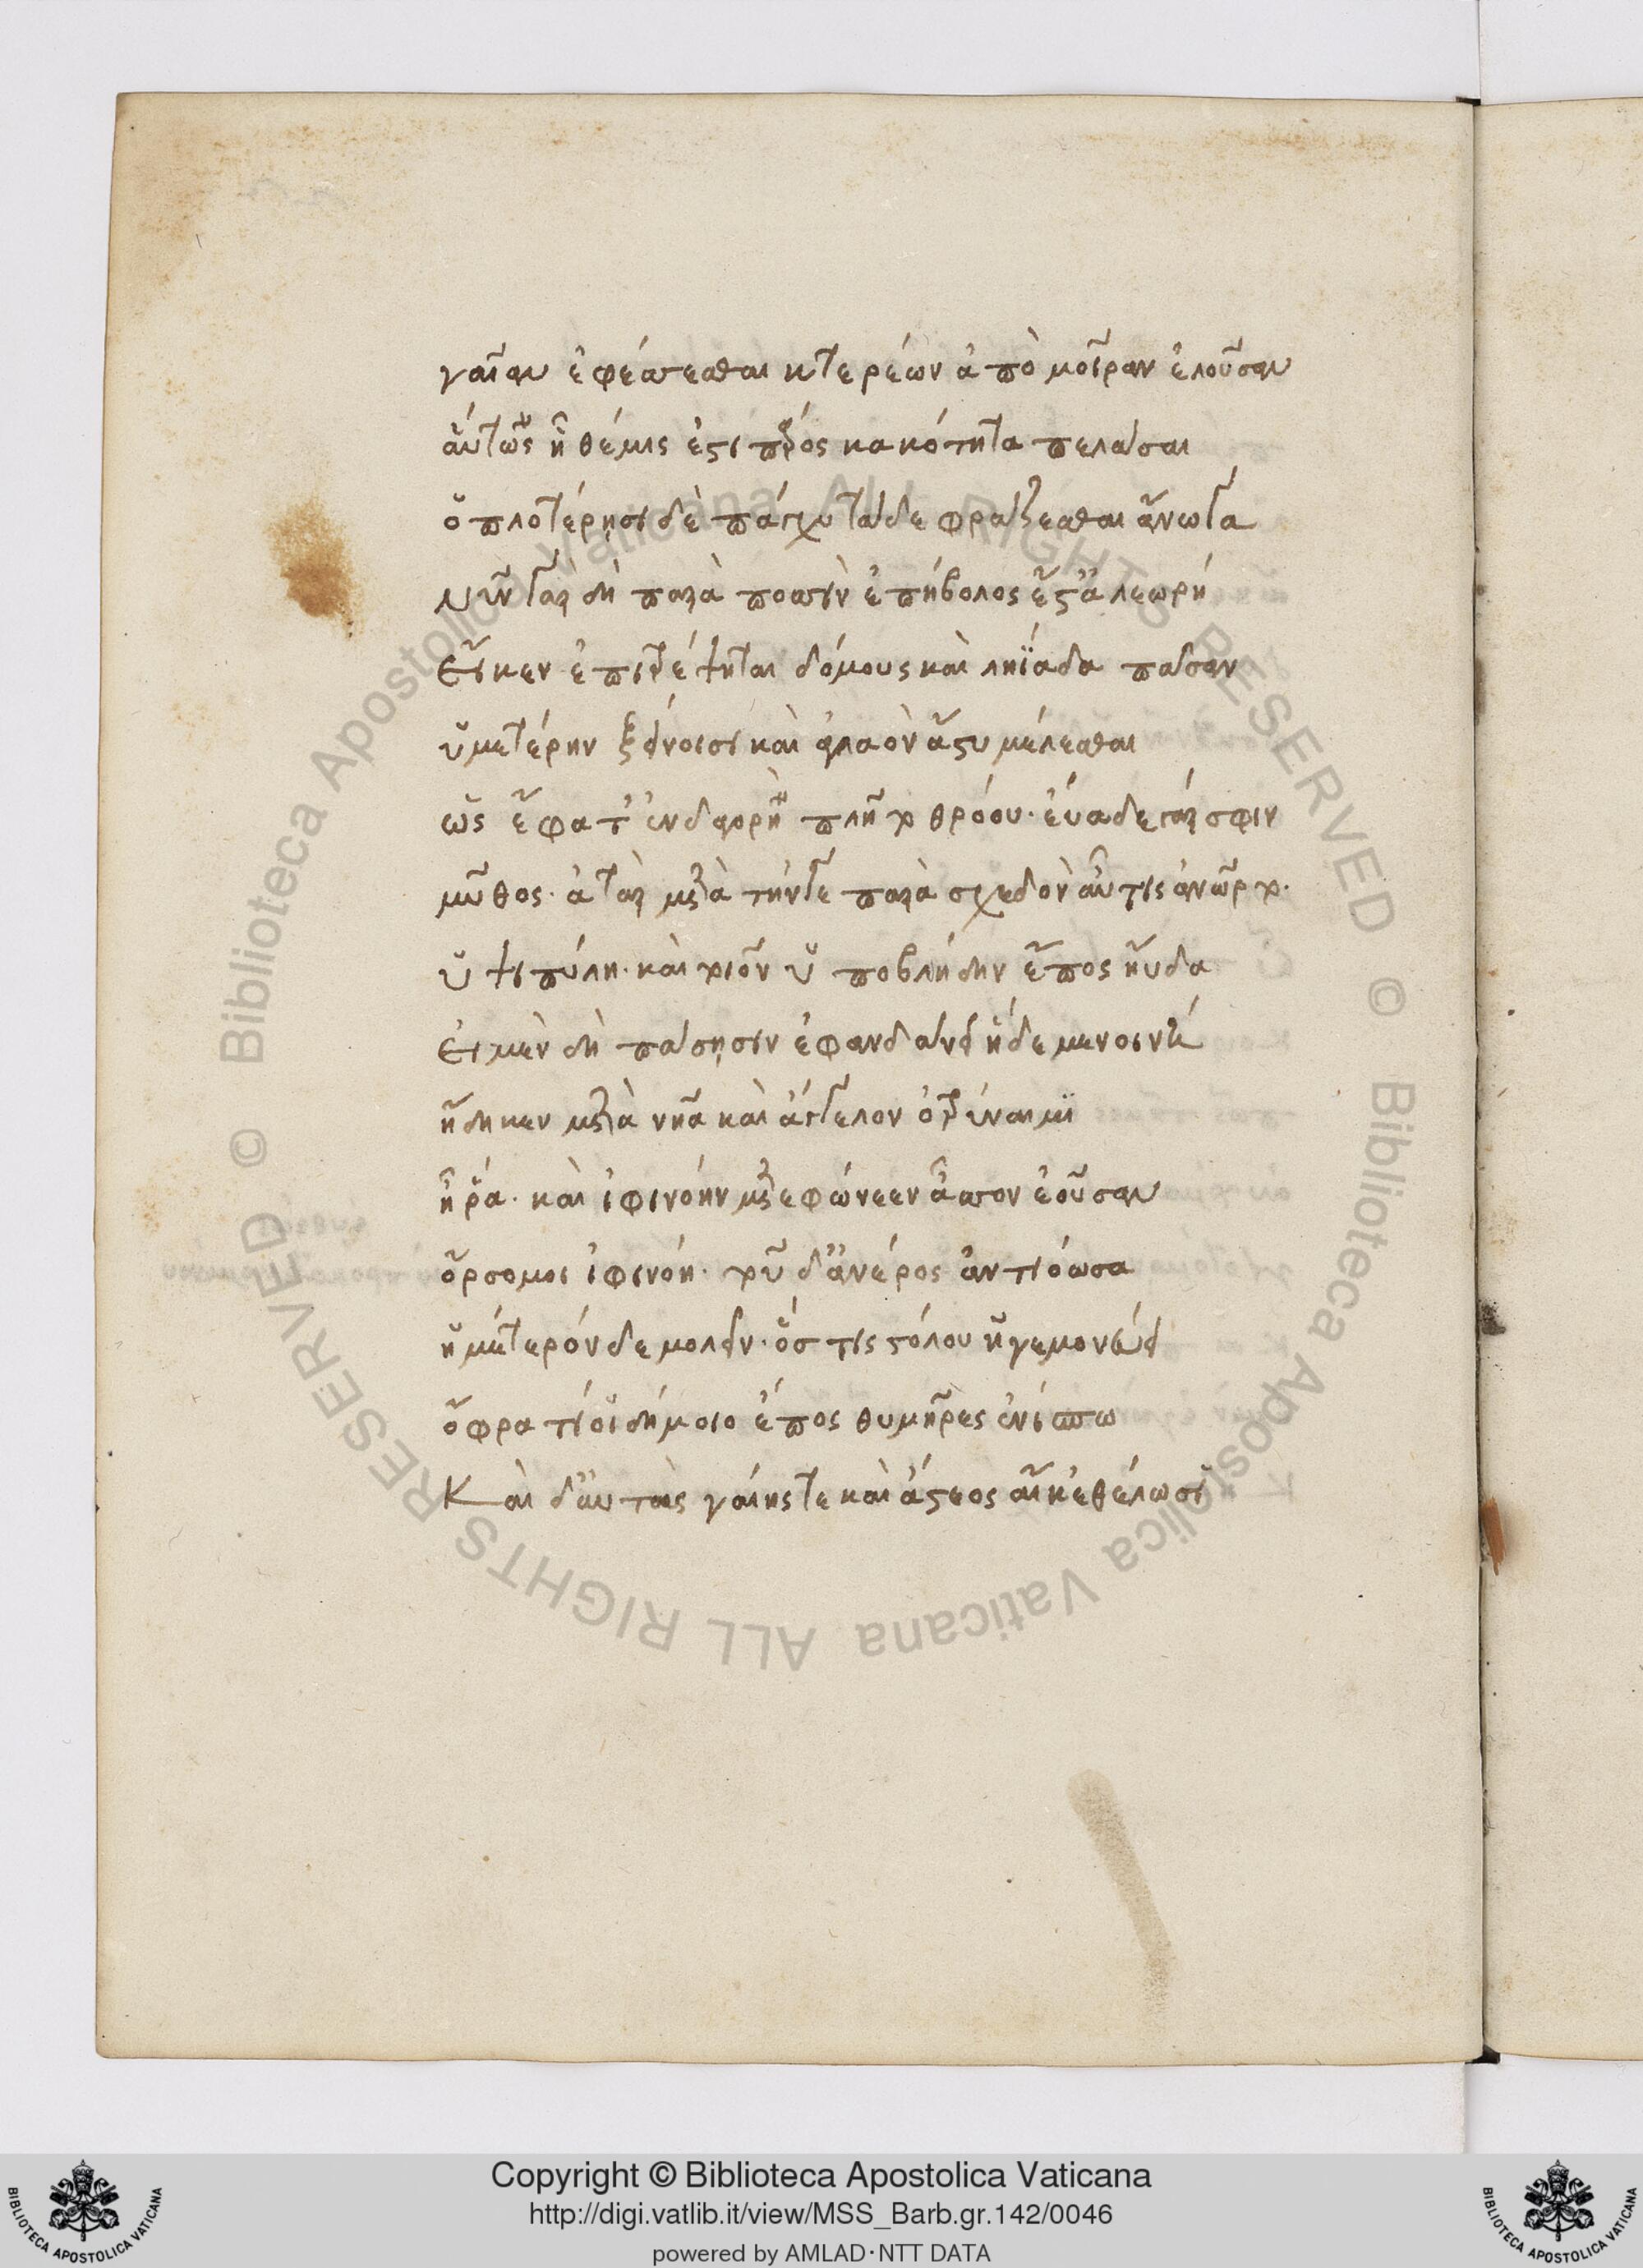 γαῖαν ἐφέσσεσθαι κτερέων ἀπὸ μοῖραν ἑλοῦσαν
αὕτως ἣ θέμις ἐστὶ πρὸς κακότητα πελάσσαι
ὁπλοτέρῃσι δὲ πάγχυ τάδε φράζεσθαι ἄνωγα
νῦν γὰρ δὴ παρὰ ποσσὶν ἐπήβολος ἔστ' ἀλεωρή
εἴ κεν ἐπιτρέψηται δόμους καὶ ληΐδα πᾶσαν
ὑμετέρην ξείνοισι καὶ ἀγλαὸν ἄστυ μέλεσθαι
ὣς ἔφατ' ἐν δ' ἀγορὴ πλῆτο θρόου. εὔαδε γάρ σφιν
μῦθος. ἀτὰρ μετὰ τήνγε παρὰ σχεδὸν αὖτις ἀνῶρτο.
ὑψιπύλη. καὶ τοῖον ὑποβλήδην ἔπος ηὔδα
εἰ μὲν δὴ πάσῃσιν ἐφανδάνει ἥδε μενοινή
ἤδη κεν μετὰ νῆα καὶ ἄγγελον ὀτρύναιμι
ἦ ῥά. καὶ ἰφινόην μετεφώνεεν ἆσσον ἐοῦσαν
ὄρσο μοι ἰφινόη. τοῦδ' ἀνέρος ἀντιόωσα
ἡμέτερόνδε μολεῖν. ὅστις στόλου ἡγεμονεύει
ὄφρα τί οἱ δήμοιο ἔπος θυμῆρες ἐνίσπω
Καὶ δ' αὐτοὺς γαίης τε καὶ ἄστεος αἴκ' ἐθέλωσι
Copyright © Biblioteca Apostolica Vaticana
http://digi.vatlib.it/view/MSS_Barb.gr.142/0046
powered by AMLAD·NTT DATA